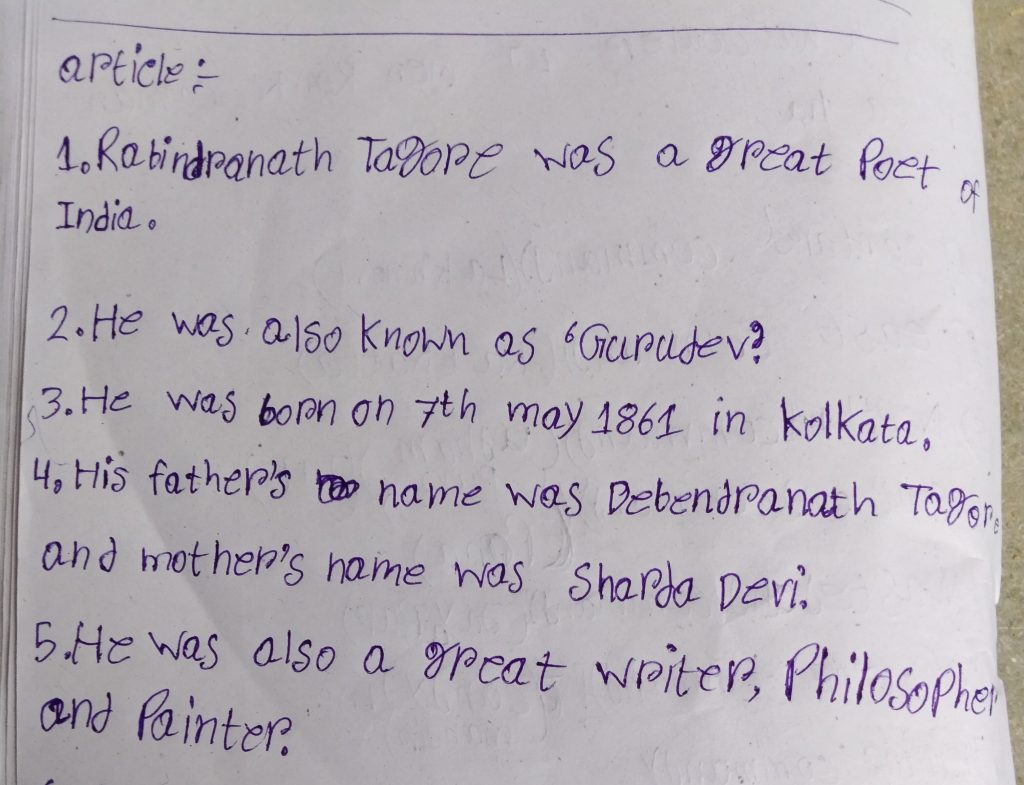 article :-
1. Rabindranath Tagore was a great Poet of
India.
2. He was also known as 'Gurudev'.
3. He was born on 7th may 1861 in kolkata.
4. His father's name was Debendranath Tagore
and mother's name was Sharda Devi.
5. He was also a great writer, Philosopher
and Painter.